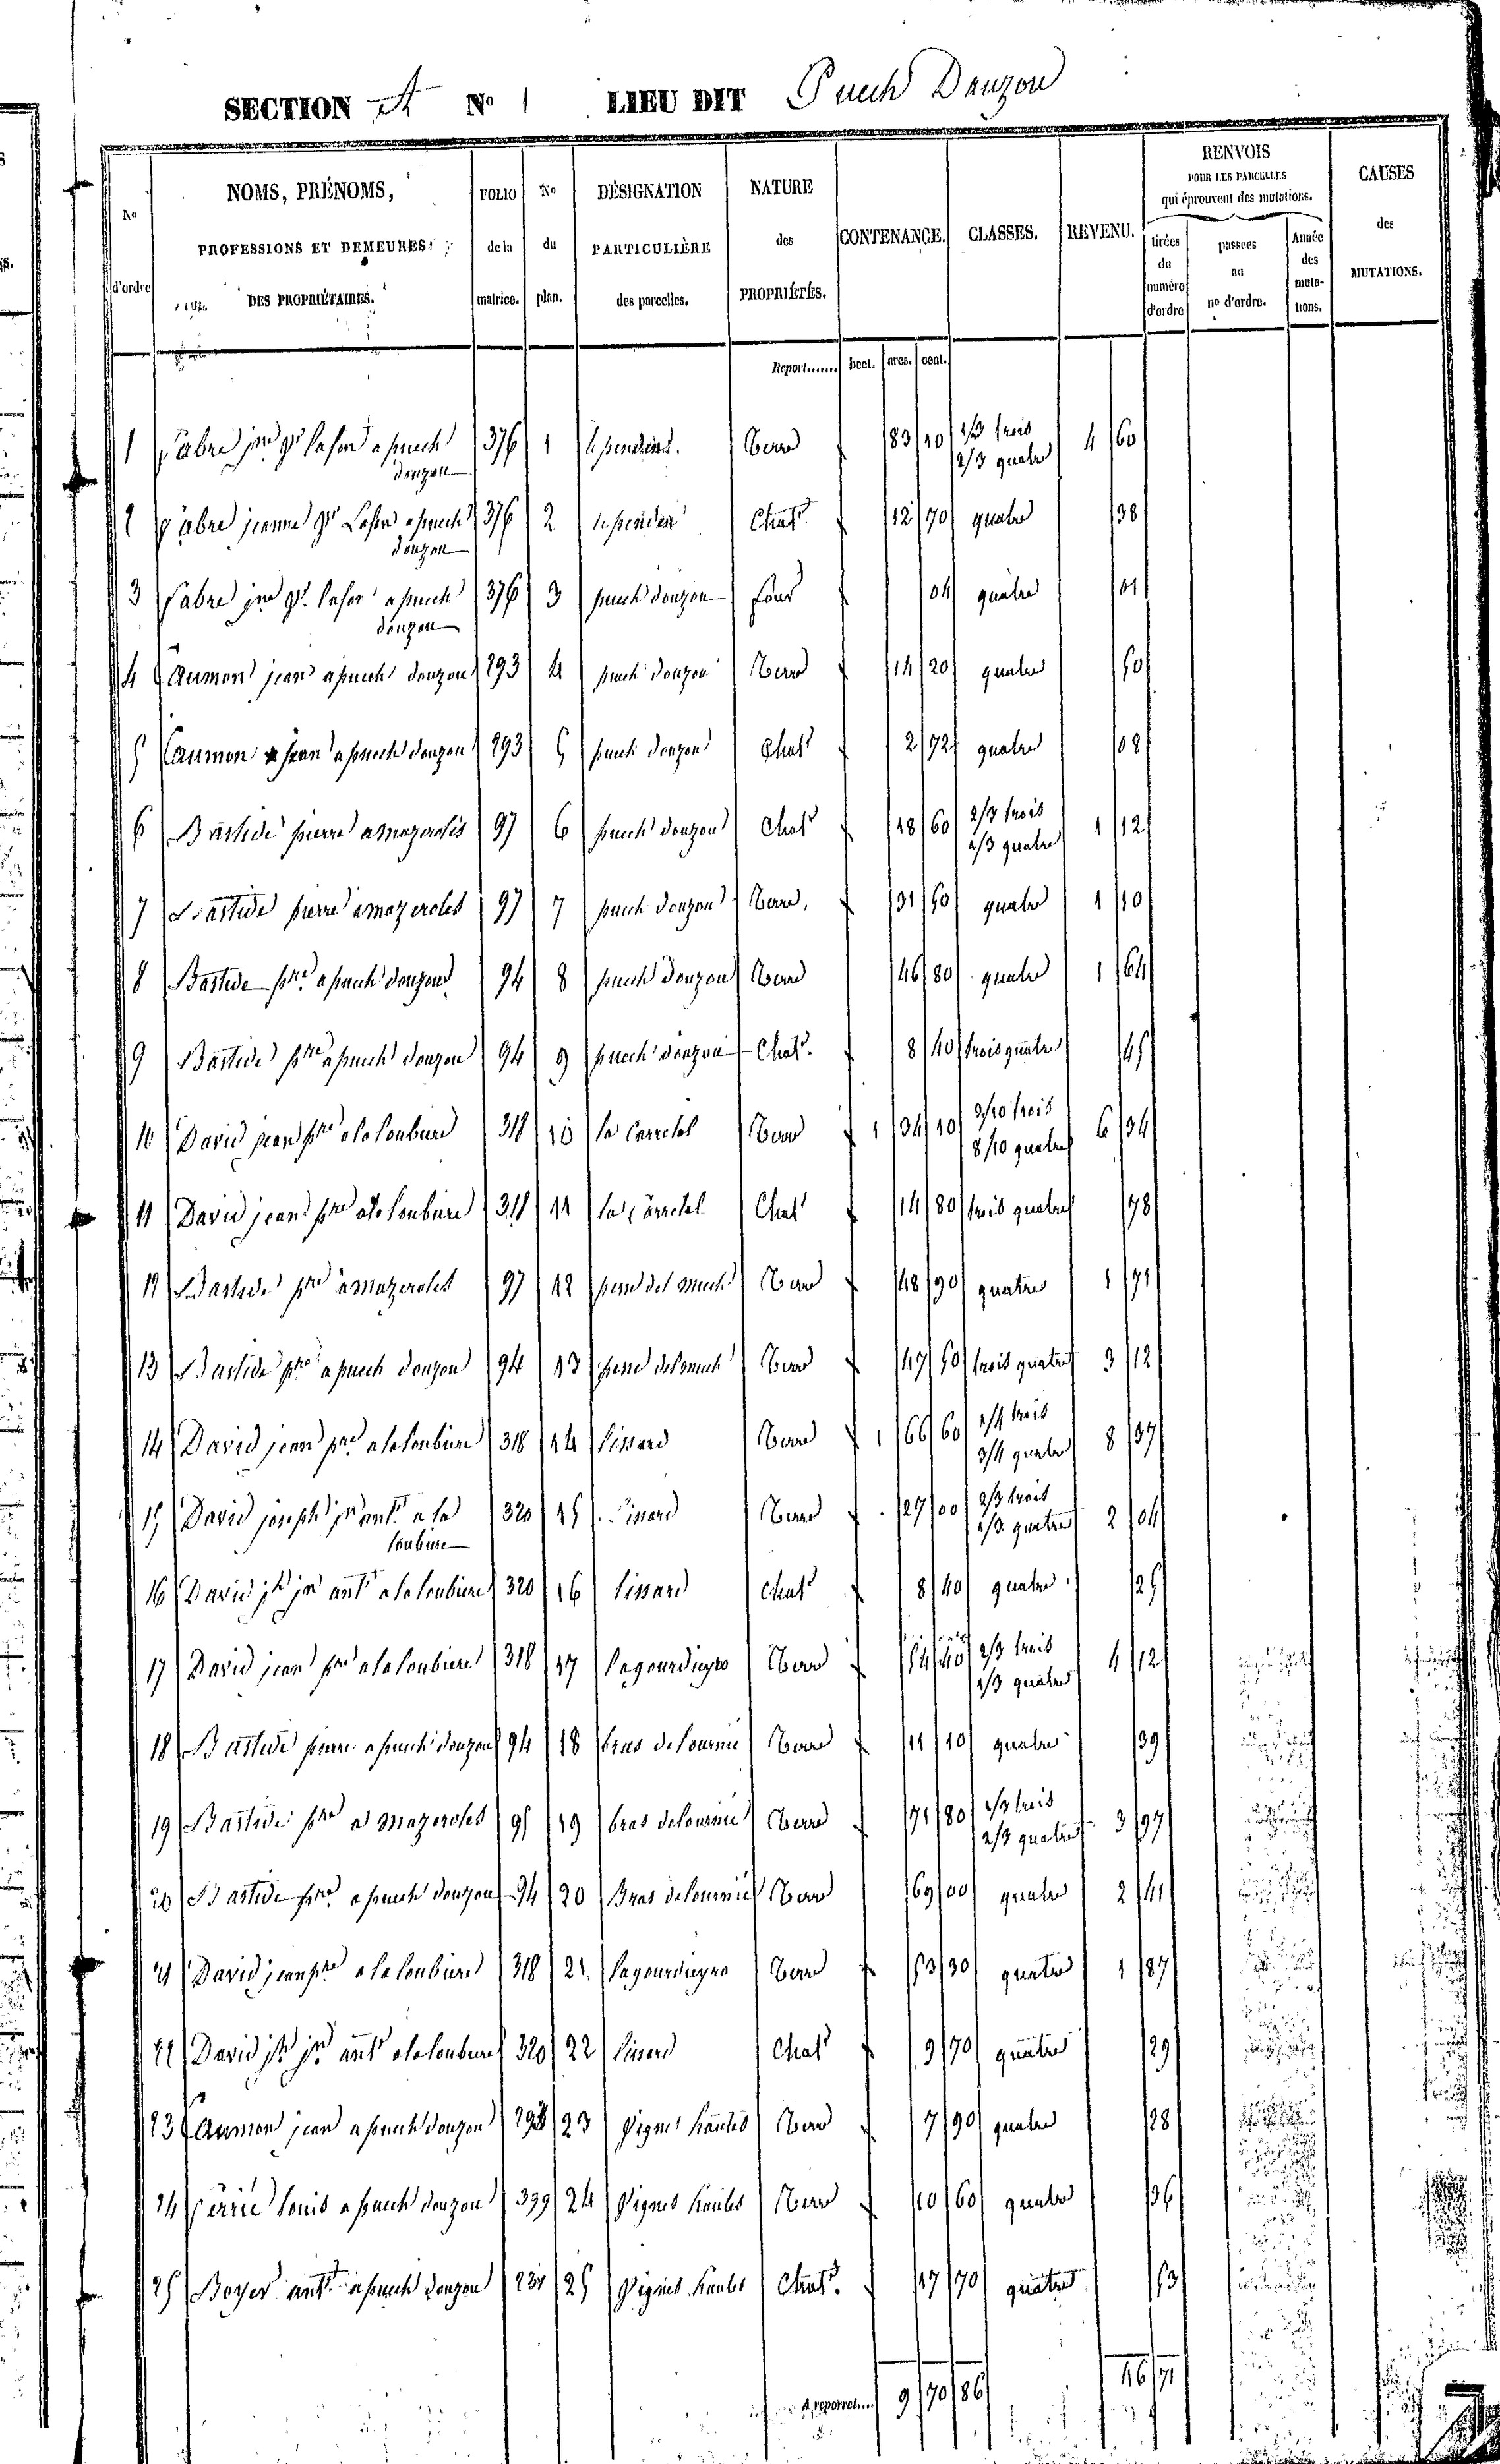 SECTION A No 1 LIEU DIT Puech Douzou
No d'ordre
NOMS, PRÉNOMS, PROFESSIONS ET DEMEURES DES PROPRIÉTAIRES.
FOLIO de la matrice.
No du plan.
DÉSIGNATION PARTICULIÈRE des parcelles.
NATURE des PROPRIÉTÉS.
CONTENANCE.
CLASSES.
REVENU.
RENVOIS POUR LES PARCELLES qui éprouvent des mutations.
tirées du numéro d'ordre
passées au no d'ordre.
Année des mutations.
CAUSES des MUTATIONS.
Report....... hect. ares. cent.
1 Fabre jne a puech 376 1 Terre 83 10 1/3 trois 4 60
douzou 2/3 quatre
2 Fabre jeanne a puech 376 2 Chat. 12 70 quatre 38
douzou
3 Fabre jne a puech 376 3 puech douzou four 04 quatre 01
douzou
4 Caumon jean a puech douzou 293 4 puech douzou Terre 14 20 quatre 50
5 Caumon jean a puech douzou 293 5 puech douzou Chat 2 72 quatre 08
6 Bastide pierre a mazeroles 97 6 puech douzou Chat 18 60 2/3 trois 1 12
1/3 quatre
7 Bastide pierre a mazeroles 97 7 puech douzou Terre 31 50 quatre 1 10
8 Bastide pre a puech douzou 94 8 puech douzou Terre 46 80 quatre 1 64
9 Bastide pre a puech douzou 94 9 puech douzou Chat. 8 40 trois quatre 45
10 David jean pre a la loubiere 318 10 la Carretal Terre 1 34 10 2/10 trois 6 34
8/10 quatre
11 David jean pre a la loubiere 318 11 la Carretal Chat 14 80 trois quatre 78
12 Bastide pre a mazeroles 97 12 Terre 48 90 quatre 1 71
13 Bastide pre a puech douzou 94 13 Terre 47 50 trois quatre 3 12
14 David jean pre a la loubiere 318 14 Lissard Terre 1 66 60 1/4 trois 8 37
3/4 quatre
15 David joseph jn ant a la 320 15 Lissard Terre 27 00 2/3 trois 2 04
loubiere 1/3 quatre
16 David jh jn ant a la loubiere 320 16 Lissard Chat 8 40 quatre 25
17 David jean pre a la loubiere 318 17 Terre 54 40 2/3 trois 4 12
1/3 quatre
18 Bastide pierre a puech douzou 94 18 Terre 11 10 quatre 39
19 Bastide pre a mazeroles 95 19 Terre 71 80 1/3 trois 3 97
2/3 quatre
20 Bastide pre a puech douzou 94 20 Terre 69 00 quatre 2 41
21 David jean pre a la loubiere 318 21 Terre 53 30 quatre 1 87
22 David jh jn ant a la loubiere 320 22 Lissard Chat 9 70 quatre 29
23 Caumon jean a puech douzou 293 23 Vignes hautes Terre 7 90 quatre 28
24 louis a puech douzou 399 24 Vignes hautes Terre 10 60 quatre 36
25 Boyer ant a puech douzou 231 25 Vignes hautes Chat. 17 70 quatre 53
A reporter.... 9 70 86 46 71